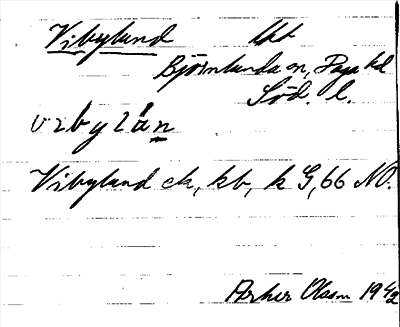 Vibylund Ut
Björnlunda sn, Daga hd
Söd. l.
vibylän
Vibylund ek, kb, k G,66 NO.
Olsson 1942